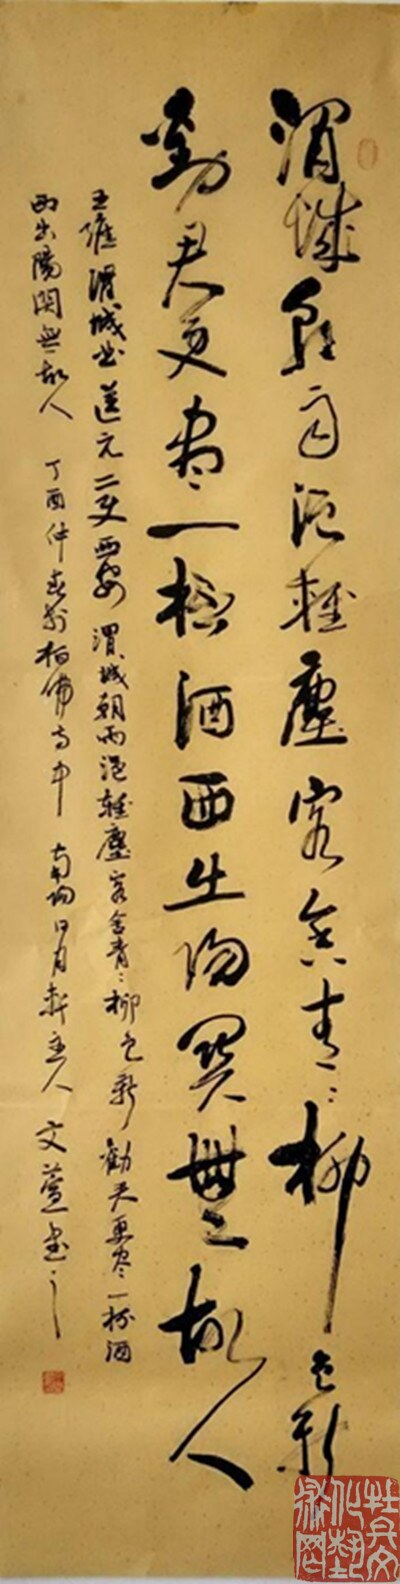 渭城朝雨浥輕塵客舍青々柳色新
勸君更盡一杯酒西出陽關無故人
王維渭城曲送元二使西安渭城朝雨浥輕塵客舍青々柳色新勸君更盡一杯酒
西出陽関無故人丁酉仲春於柏佛寺中南陽日月軒主人文萱書之
牡丹文化藝術网